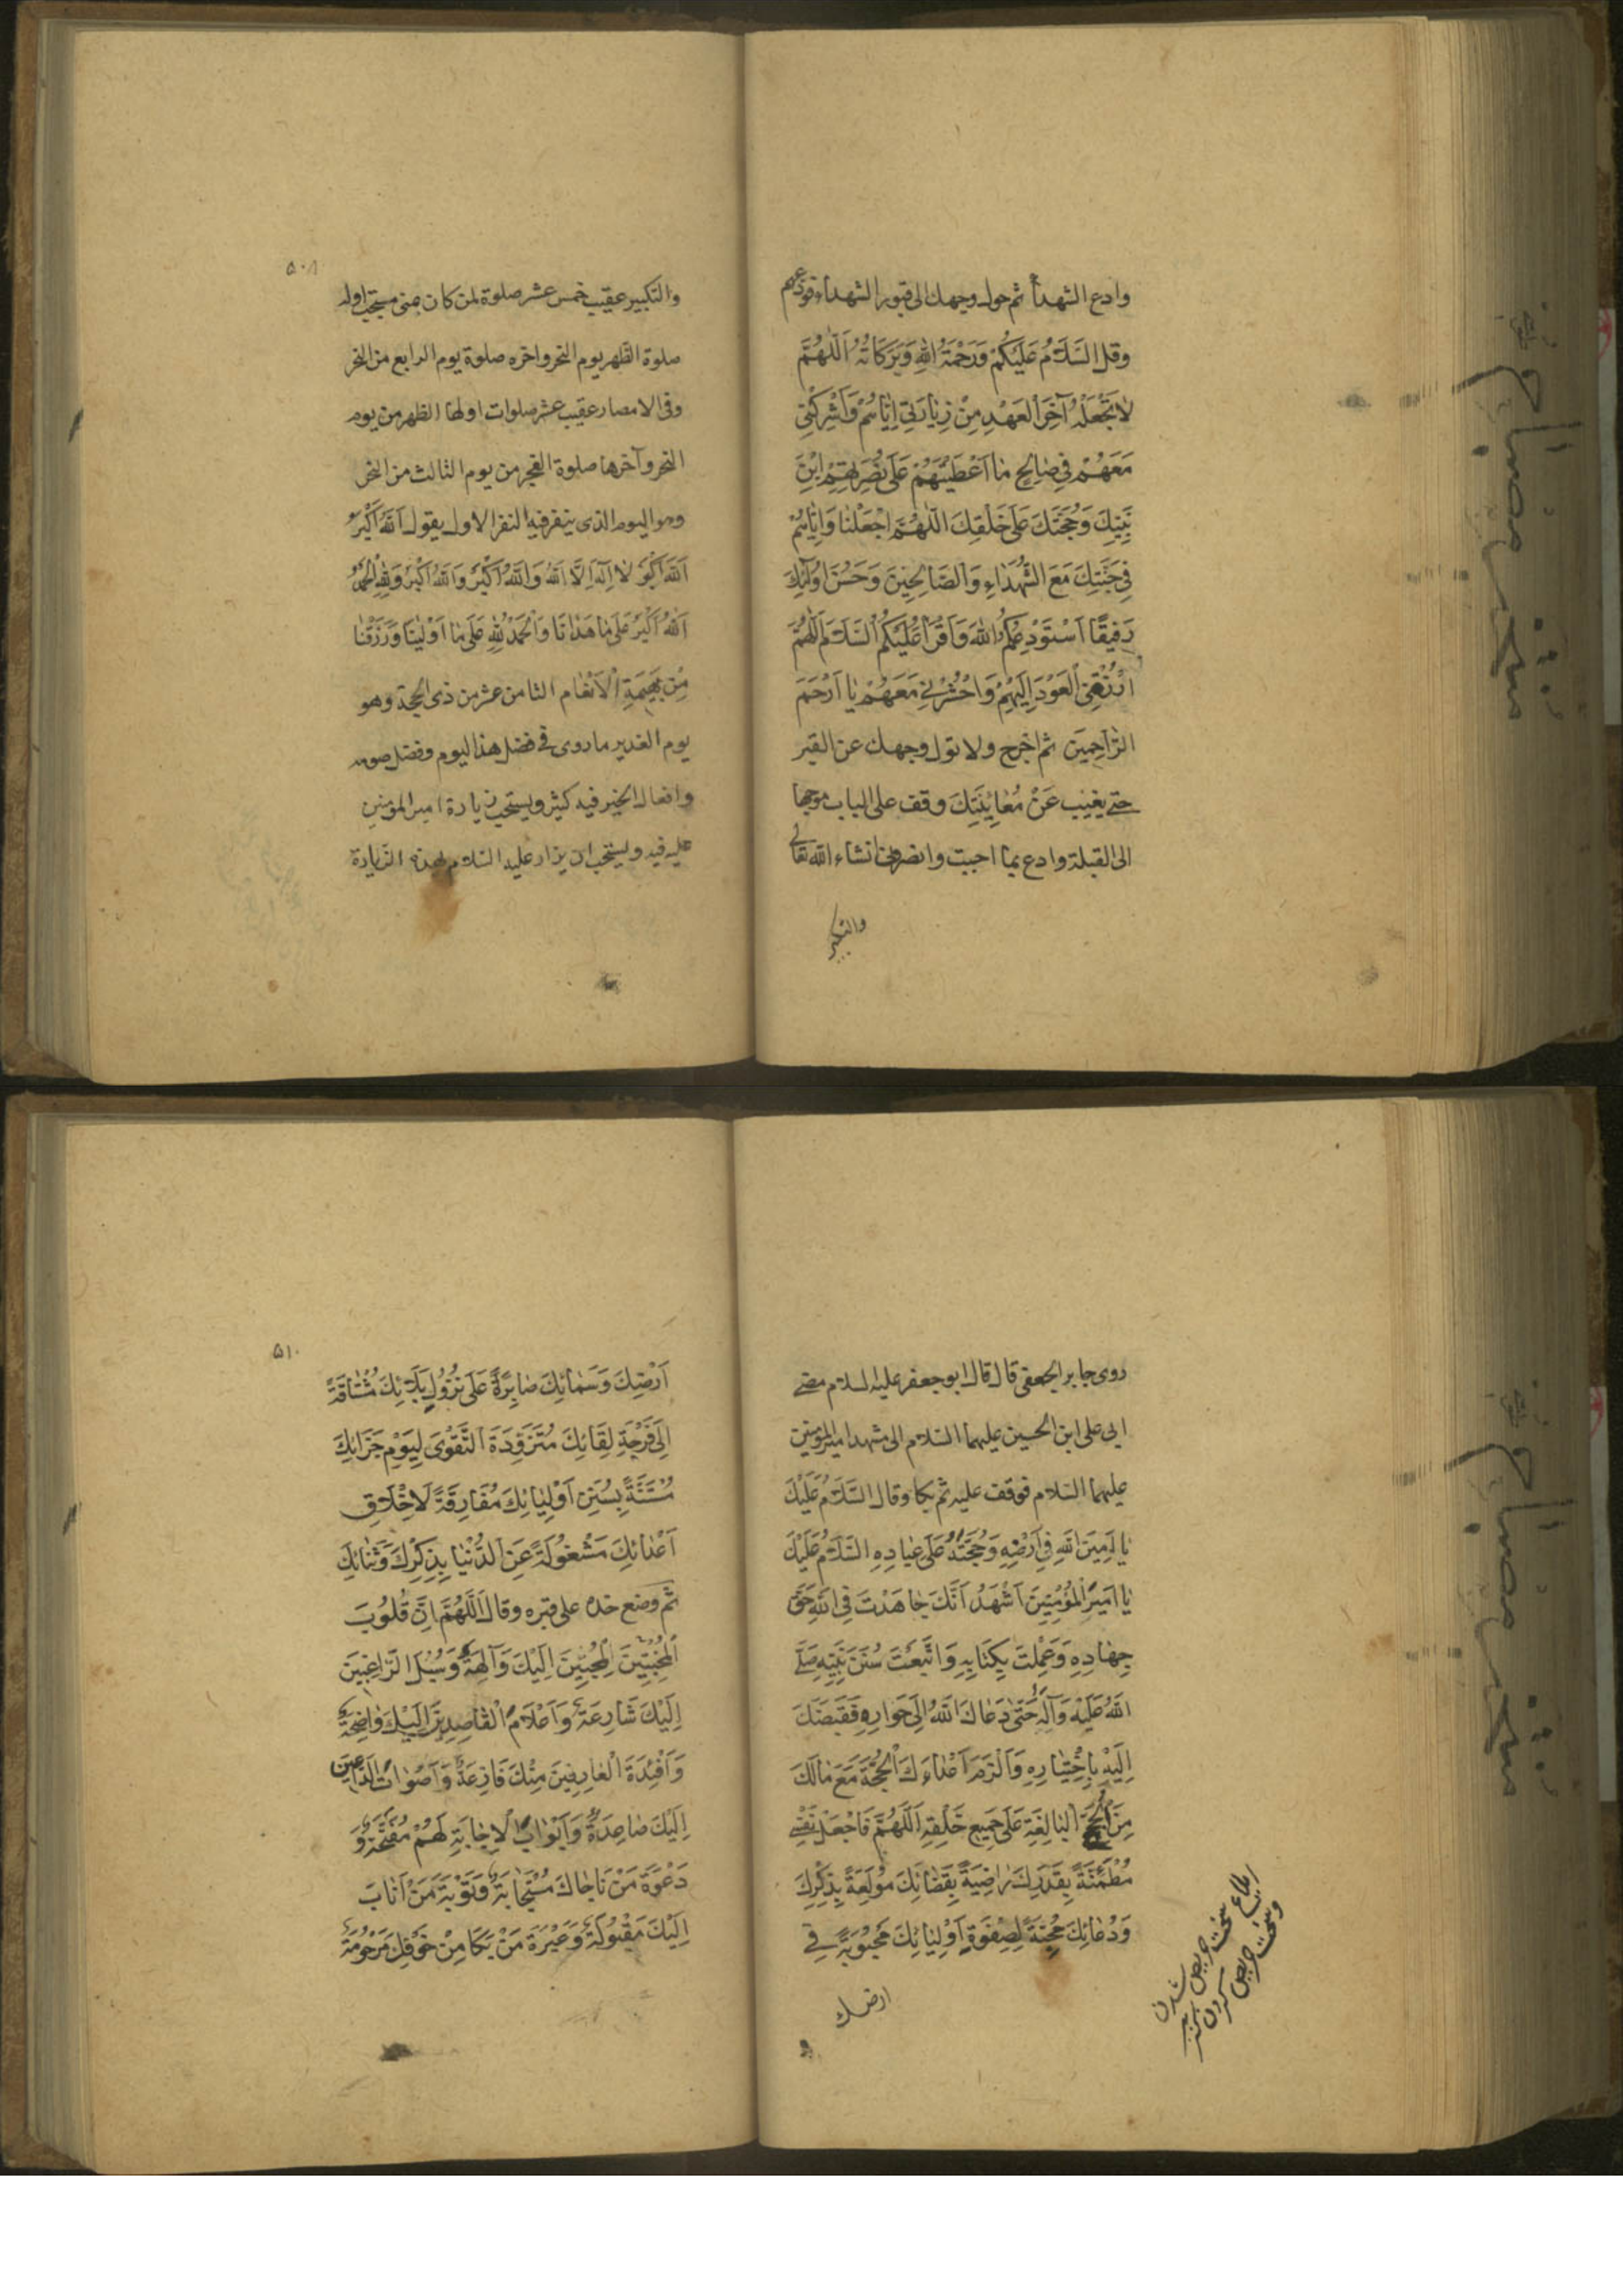 وادع الشهدأ ثم حول وجهك الى قبور الشهداء فودعهم
وقل اَلسَّلَامُ عَلَيْكُمْ وَرَحْمَةُ اللهِ وَبَرَكَاتُهُ اَللّٰهُمَّ
لَا تَجْعَلْهُ آخِرَ الْعَهْدِ مِنْ زِيَارَتِي اِيَّاهُمْ وَاَشْرِكْنِي
مَعَهُمْ فِي صَالِحِ مَا اَعْطَيْتَهُمْ عَلَى نُصْرَتِهِمْ ابْنَ
نَبِيِّكَ وَحُجَّتَكَ عَلَى خَلْقِكَ اَللّٰهُمَّ اجْعَلْنَا وَاِيَّاهُمْ
فِي جَنَّتِكَ مَعَ الشُّهَدَاءِ وَالصَّالِحِينَ وَحَسُنَ اُولٰئِكَ
رَفِيقًا اَسْتَوْدِعُكُمُ اللهَ وَاَقْرَأُ عَلَيْكُمُ السَّلَامَ اَللّٰهُمَّ
ارْزُقْنِي الْعَوْدَ اِلَيْهِمْ وَاحْشُرْنِي مَعَهُمْ يَا اَرْحَمَ
الرَّاحِمِينَ ثم اخرج ولا تول وجهك عن القبر
حتى يغيب عَنْ مُعَايَنَتِكَ وقف على الباب موجها
الى القبلة وادع بما احببت وانصرف انشاء الله تعالى
والتكبير
۵۰۸
والتكبير عقيب خمس عشر صلوة لمن كان بمنى مستحب اوله
صلوة الظهر يوم النحر واخره صلوة يوم الرابع من النحر
وفى الامصار عقيب عشر صلوات اولها الظهر من يوم
النحر وآخرها صلوة الفجر من يوم الثالث من النحر
وهو اليوم الذى ينفر فيه النفر الاول يقول اَللهُ اَكْبَرُ
اَللهُ اَكْبَرُ لَا اِلٰهَ اِلَّا اللهُ وَاللهُ اَكْبَرُ وَاللهُ اَكْبَرُ وَلِلّٰهِ الْحَمْدُ
اَللهُ اَكْبَرُ عَلَى مَا هَدَانَا وَالْحَمْدُ لِلّٰهِ عَلَى مَا اَوْلَيْنَا وَرَزَقْنَا
مِنْ بَهِيمَةِ الْاَنْعَامِ الثامن عشر من ذى الحجة وهو
يوم الغدير ما روى فى فضل هذا اليوم وفضل صومه
وافعال الخير فيه كثير ويستحب زيارة امير المؤمنين
عليه فيه ويستحب ان يزار عليه السّلام بهذه الزيارة
روى جابر الجعفى قال قال ابو جعفر عليه السلام مضى
ابى على ابن الحسين عليهما السّلام الى مشهد امير المؤمنين
عليهما السّلام فوقف عليه ثم بكا وقال اَلسَّلَامُ عَلَيْكَ
يَا اَمِينَ اللهِ فِي اَرْضِهِ وَحُجَّتُهُ عَلَى عِبَادِهِ اَلسَّلَامُ عَلَيْكَ
يَا اَمِيرَ الْمُؤْمِنِينَ اَشْهَدُ اَنَّكَ جَاهَدْتَ فِي اللهِ حَقَّ
جِهَادِهِ وَعَمِلْتَ بِكِتَابِهِ وَاتَّبَعْتَ سُنَنَ نَبِيِّهِ صَلَّى
اللهُ عَلَيْهِ وَآلِهِ حَتَّى دَعَاكَ اللهُ اِلَى جَوَارِهِ فَقَبَضَكَ
اِلَيْهِ بِاخْتِيَارِهِ وَاَلْزَمَ اَعْدَاءَكَ الْحُجَّةَ مَعَ مَا لَكَ
مِنَ الْحُجَجِ الْبَالِغَةِ عَلَى جَمِيعِ خَلْقِهِ اَللّٰهُمَّ فَاجْعَلْ نَفْسِي
مُطْمَئِنَّةً بِقَدَرِكَ رَاضِيَةً بِقَضَائِكَ مُولَعَةً بِذِكْرِكَ
وَدُعَائِكَ مُحِبَّةً لِصَفْوَةِ اَوْلِيَائِكَ مَحْبُوبَةً فِي
ارضك
سخت حريص شدن
وسخت حريص كردن
۵۱۰
اَرْضِكَ وَسَمَائِكَ صَابِرَةً عَلَى نُزُولِ بَلَائِكَ مُشْتَاقَةً
اِلَى فَرْحَةِ لِقَائِكَ مُتَزَوِّدَةَ التَّقْوَى لِيَوْمِ جَزَائِكَ
مُسْتَنَّةً بِسُنَنِ اَوْلِيَائِكَ مُفَارِقَةً لِاَخْلَاقِ
اَعْدَائِكَ مَشْغُولَةً عَنِ الدُّنْيَا بِذِكْرِكَ وَثَنَائِكَ
ثم وضع خده على قبره وقال اَللّٰهُمَّ اِنَّ قُلُوبَ
الْمُخْبِتِينَ اِلَيْكَ وَالِهَةٌ وَسُبُلَ الرَّاغِبِينَ
اِلَيْكَ شَارِعَةٌ وَاَعْلَامَ الْقَاصِدِينَ اِلَيْكَ وَاضِحَةٌ
وَاَفْئِدَةَ الْعَارِفِينَ مِنْكَ فَازِعَةٌ وَاَصْوَاتَ الدَّاعِينَ
اِلَيْكَ صَاعِدَةٌ وَاَبْوَابَ الْاِجَابَةِ لَهُمْ مُفَتَّحَةٌ وَ
دَعْوَةَ مَنْ نَاجَاكَ مُسْتَجَابَةٌ وَتَوْبَةَ مَنْ اَنَابَ
اِلَيْكَ مَقْبُولَةٌ وَعَبْرَةَ مَنْ بَكَا مِنْ خَوْفِكَ مَرْحُومَةٌ